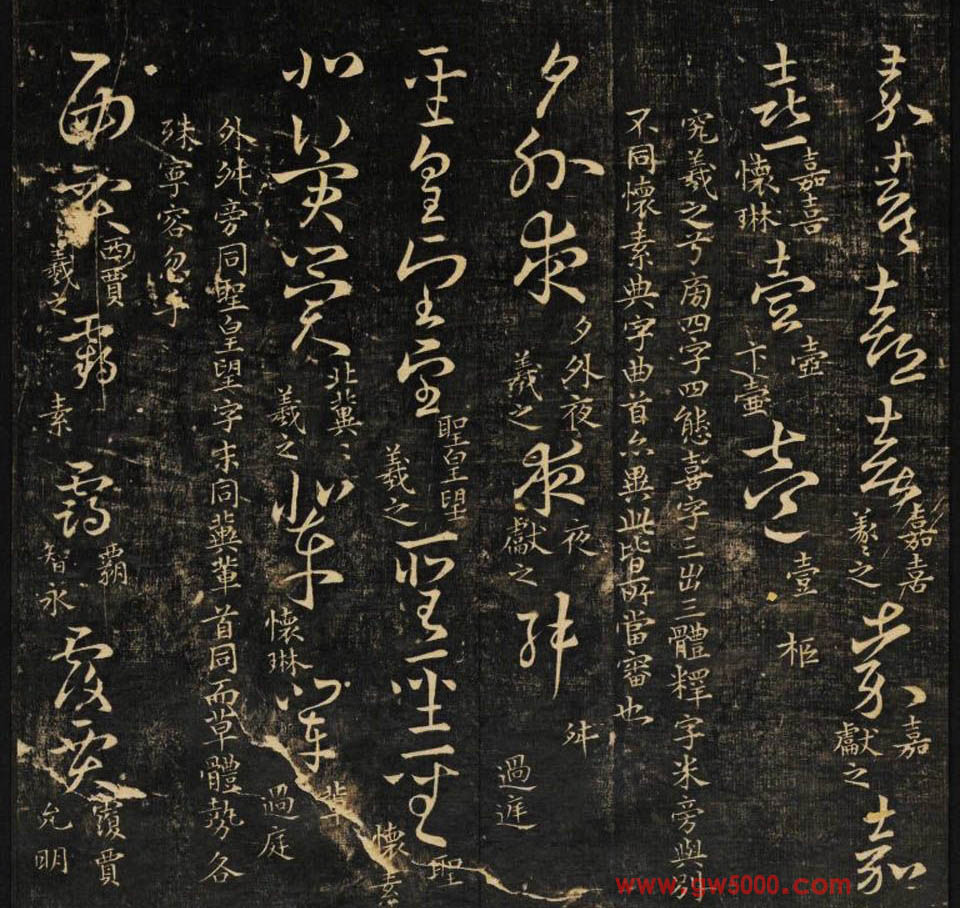 嘉喜 羲之 嘉 獻之
嘉喜 懷琳 壺 卞壼 壹 柩
究羲之兮廟四字四態喜字三出三體釋字米旁與別
不同懷素典字曲首亦異此皆所當審也
夕外夜 夕外夜 羲之 夜 夜 獻之 舛 舛 過庭
聖皇望 羲之 聖 聖 聖 懷素
北冀 北冀〻 羲之 輩 懷琳 輩 輩 過庭
外舛旁同聖皇望字末同冀輩首同而草體勢各
殊寧容忽乎
西賈 西賈 羲之 霸 素 霸 霸 智永 覆賈 覆賈 允明
www.gw5000.com